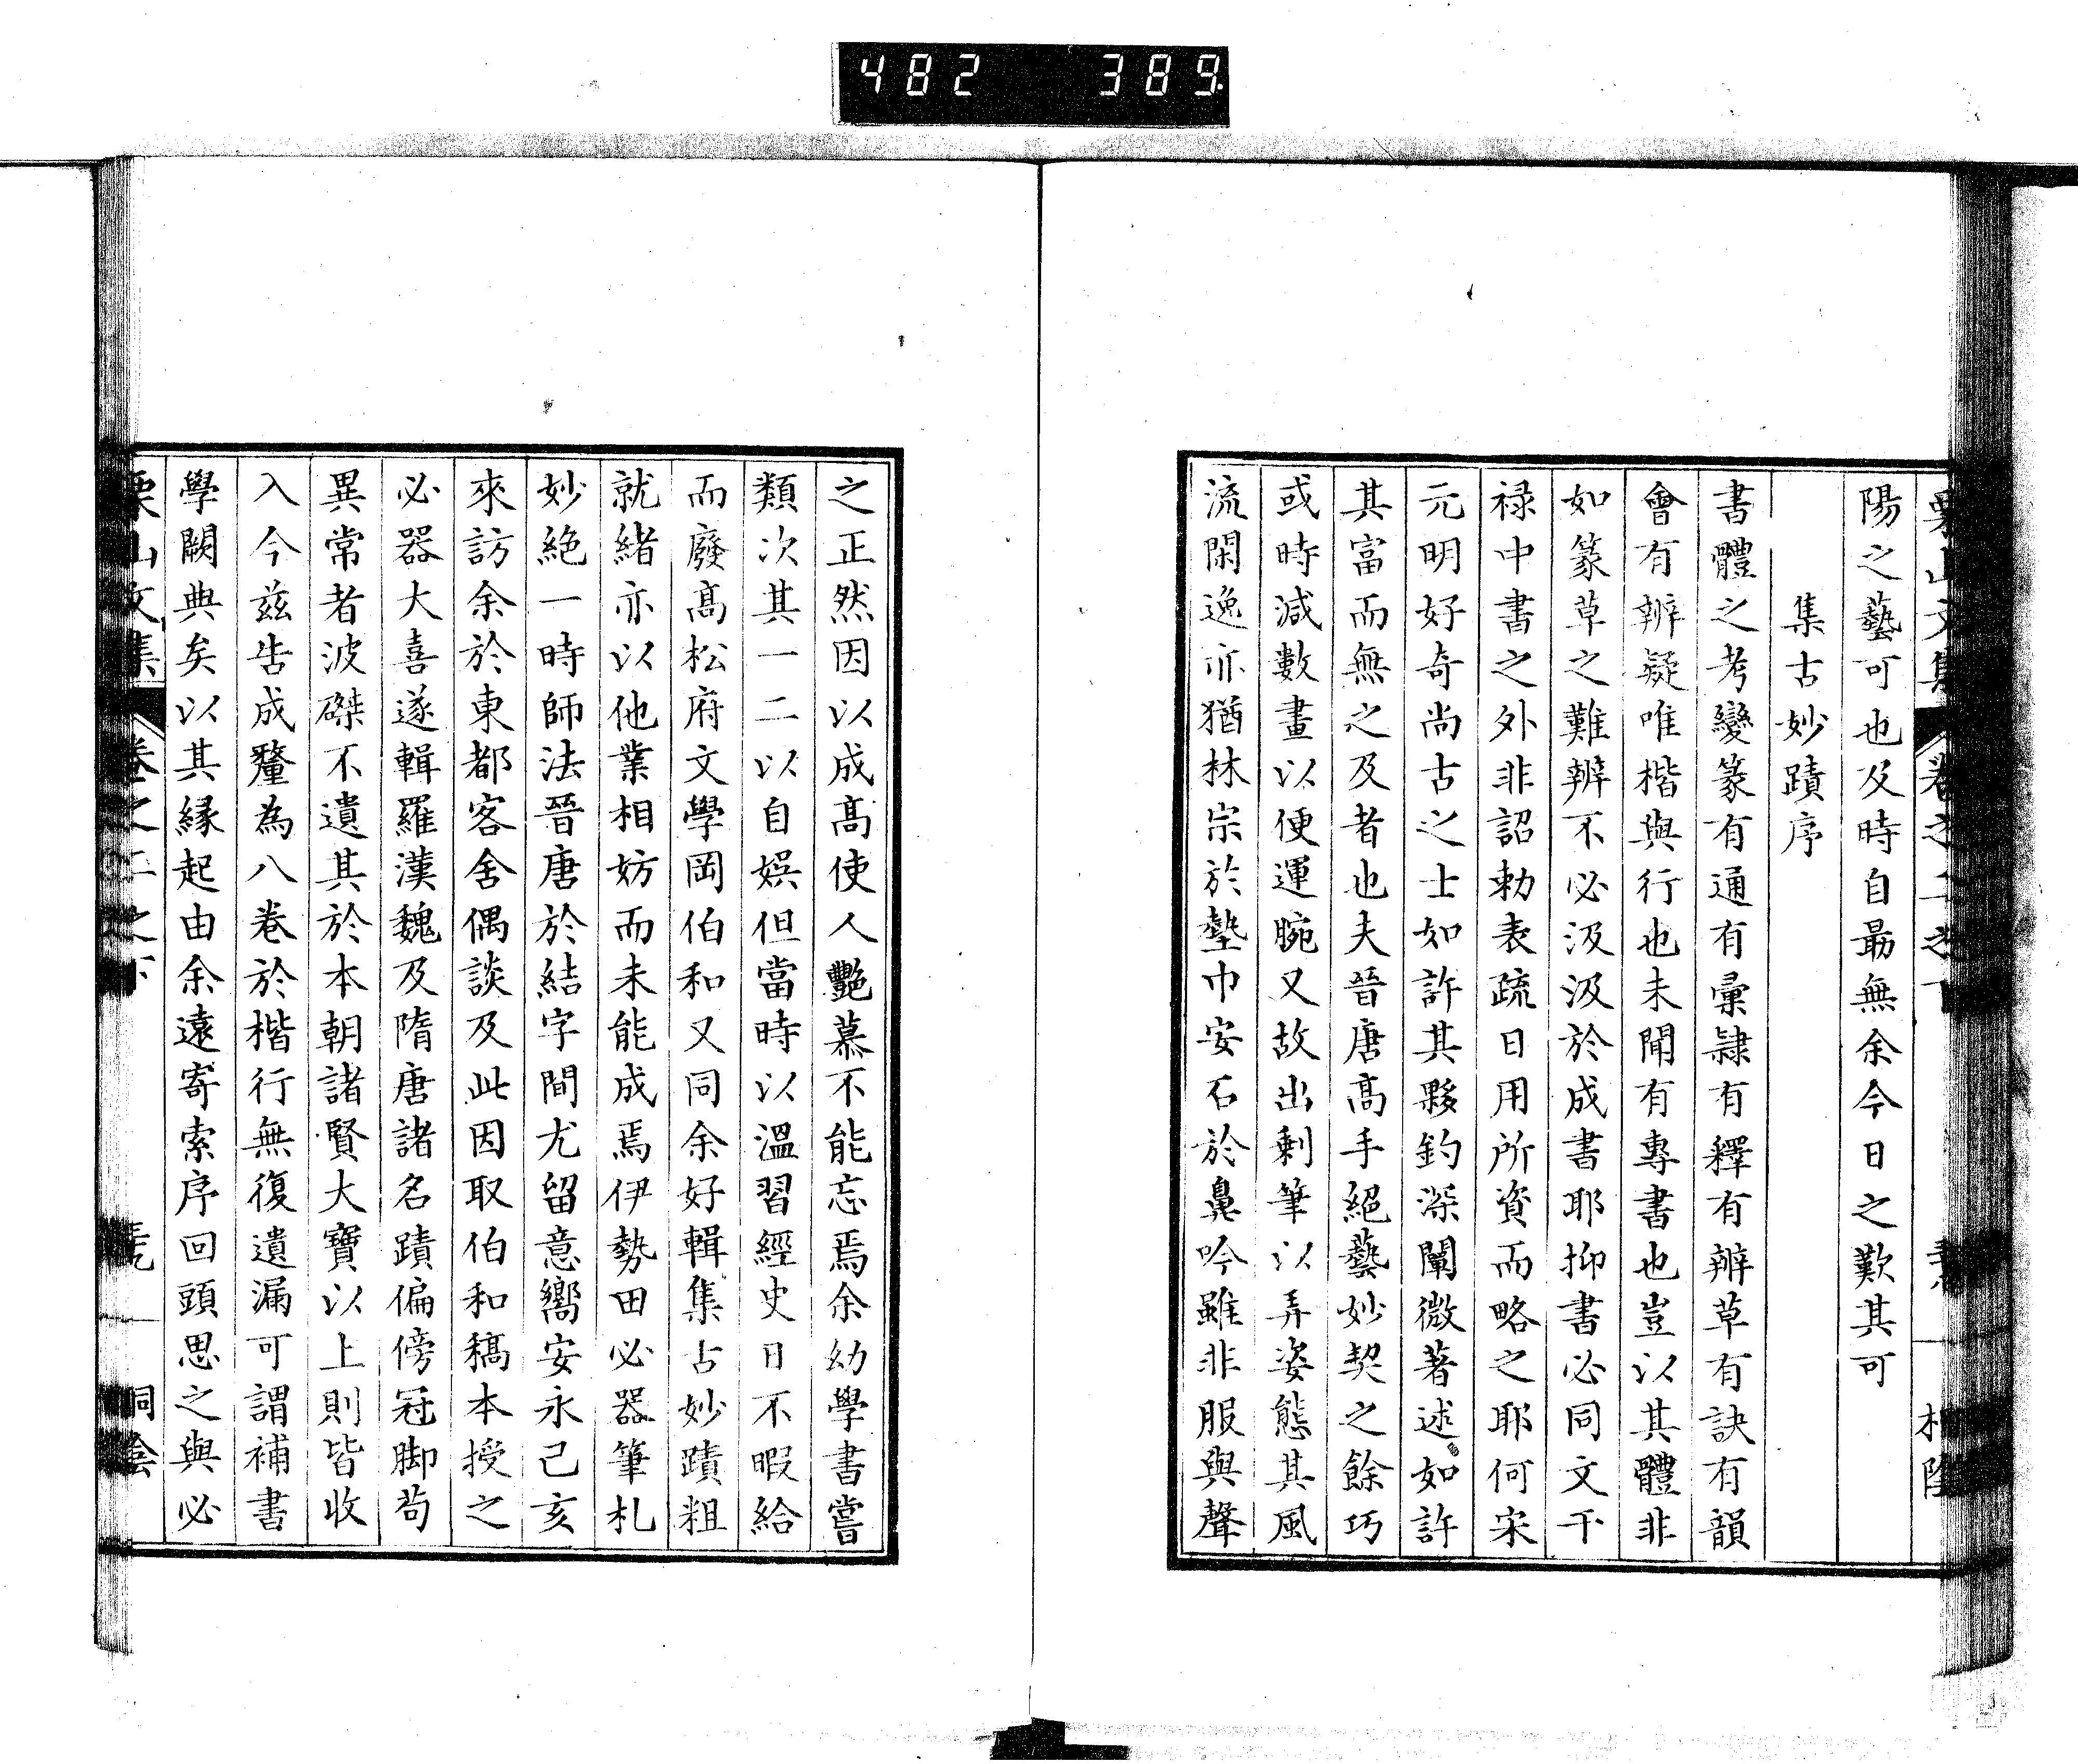 482 389
陽之藝可也及時自勗無余今日之歎其可
集古妙蹟序
書體之考變篆有通有彙隷有釋有辨草有訣有韻
會有辨疑唯楷與行也未聞有專書也豈以其體非
如篆草之難辨不必汲汲於成書耶抑書必同文干
祿中書之外非詔勅表疏日用所資而略之耶何宋
元明好奇尚古之士如許其夥釣深闡微著述如許
其富而無之及者也夫晉唐高手絕藝妙契之餘巧
或時減數畫以便運腕又故出剩筆以弄姿態其風
流閑逸亦猶林宗於墊巾安石於鼻吟雖非服與聲
之正然因以成高使人艷慕不能忘焉余幼學書嘗
類次其一二以自娯但當時以溫習經史日不暇給
而廢高松府文學岡伯和又同余好輯集古妙蹟粗
就緒亦以他業相妨而未能成焉伊勢田必器筆札
妙絶一時師法晉唐於結字間尤留意嚮安永己亥
來訪余於東都客舍偶談及此因取伯和稿本授之
必器大喜遂輯羅漢魏及隋唐諸名蹟偏傍冠脚苟
異常者波磔不遺其於本朝諸賢大寶以上則皆收
入今茲告成釐為八卷於楷行無復遺漏可謂補書
學闕典矣以其縁起由余遠寄索序回頭思之與必
栗山文集 卷之二之下